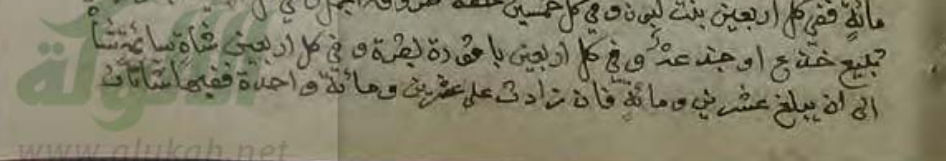 مائة ففي كل اربعين بنت لبون و في كل خمسين حقة طروقة
تبيع جذع او جذعة و في كل اربعين باقورة بقرة و في كل اربعين شاة سائمة شاة
الى ان يبلغ عشرين ومائة فان زادت على عشرين ومائة واحدة ففيها شاتان
الألوكة
www.alukah.net